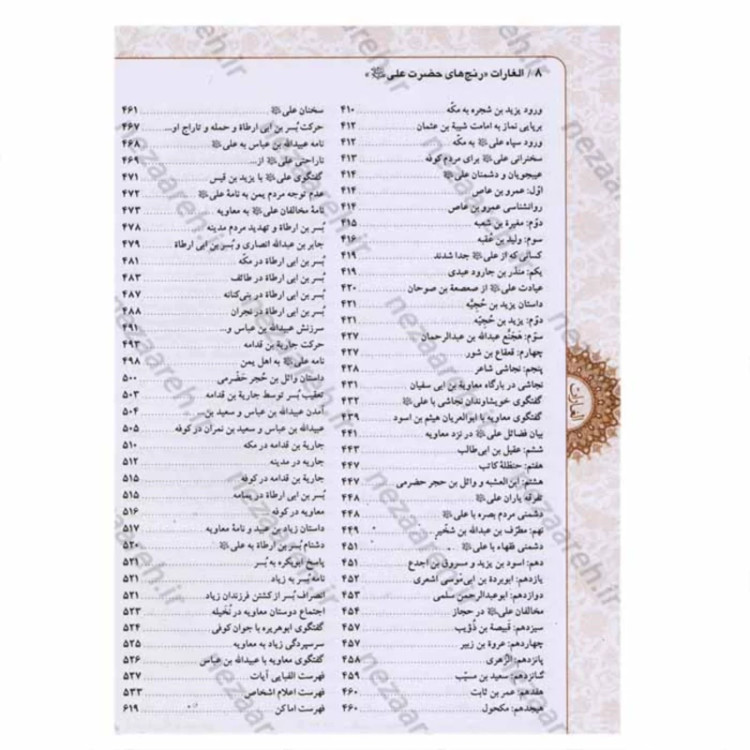 ۸ / الغارات «رنج‌های حضرت علی ﷺ»
ورود یزید بن شجره به مکّه ۴۱۰
برپایی نماز به امامت شیبة بن عثمان ۴۱۲
ورود سپاه علی ﷺ به مکّه ۴۱۲
سخنرانی علی ﷺ برای مردم کوفه ۴۱۳
عیبجویان و دشمنان علی ﷺ ۴۱۴
اوّل: عمرو بن عاص ۴۱۴
روانشناسی عمرو بن عاص ۴۱۴
دوّم: مغیرة بن شعبه ۴۱۵
سوم: ولید بن عقبه ۴۱۶
کسانی که از علی ﷺ جدا شدند ۴۱۹
یکم: منذر بن جارود عبدی ۴۱۹
عیادت علی ﷺ از صعصعة بن صوحان ۴۲۰
داستان یزید بن حُجیّه ۴۲۱
دوّم: یزید بن حُجیّه ۴۲۱
سوّم: هَجَنَّع عبدالله بن عبدالرحمان ۴۲۷
چهارم: قعقاع بن شور ۴۲۷
پنجم: نجاشی شاعر ۴۲۸
نجاشی در بارگاه معاویة بن ابی سفیان ۴۳۱
گفتگوی خویشاوندان نجاشی با علی ﷺ ۴۳۲
گفتگوی معاویه با ابوالعریان هیثم بن اسود ۴۳۹
بیان فضائل علی ﷺ در نزد معاویه ۴۴۱
ششم: عقیل بن ابی‌طالب ۴۴۳
هفتم: حنظلهٔ کاتب ۴۴۷
هشتم: ابن‌العشبه و وائل بن حجر حضرمی ۴۴۷
تفرقه یاران علی ﷺ ۴۴۸
دشمنی مردم بصره با علی ﷺ ۴۴۸
نهم: مطرّف بن عبدالله بن شخّیر ۴۴۹
دشمنی فقهاء با علی ﷺ ۴۵۱
دهم: اسود بن یزید و مسروق بن اجدع ۴۵۱
یازدهم: ابوبردة بن ابی‌موسی اشعری ۴۵۲
دوازدهم: ابوعبدالرحمن سلمی ۴۵۳
مخالفان علی ﷺ در حجاز ۴۵۴
سیزدهم: قَبیصة بن ذُؤیب ۴۵۷
چهاردهم: عروة بن زبیر ۴۵۷
پانزدهم: الزّهری ۴۵۸
شانزدهم: سعید بن مسیّب ۴۵۹
هفدهم: عمر بن ثابت ۴۶۰
هیجدهم: مکحول ۴۶۰
سخنان علی ﷺ ۴۶۱
حرکت بُسر بن ابی ارطاة و حمله و تاراج او... ۴۶۷
نامه عبیدالله بن عباس به علی ﷺ ۴۶۸
ناراحتی علی ﷺ از... ۴۶۹
گفتگوی علی ﷺ با یزید بن قیس ۴۷۱
عدم توجه مردم یمن به نامهٔ علی ﷺ ۴۷۲
نامهٔ مخالفان علی ﷺ به معاویه ۴۷۳
بُسر بن ارطاة و تهدید مردم مدینه ۴۷۸
جابر بن عبدالله انصاری و بُسر بن ابی ارطاة ۴۷۹
بُسر بن ابی ارطاة در مکّه ۴۸۱
بُسر بن ابی ارطاة در طائف ۴۸۳
بُسر بن ابی ارطاة در بنی‌کنانه ۴۸۷
بُسر بن ابی ارطاة در نجران ۴۸۸
سرزنش عبیدالله بن عباس و... ۴۹۱
حرکت جاریة بن قدامه ۴۹۳
نامه علی ﷺ به اهل یمن ۴۹۸
داستان وائل بن حُجر حَضْرمی ۵۰۰
تعقیب بُسر توسط جاریة بن قدامه ۵۰۳
آمدن عبیدالله بن عباس و سعید بن... ۵۰۴
عبیدالله بن عباس و سعید بن نمران در کوفه ۵۰۵
جاریة بن قدامه در مکه ۵۱۰
جاریه در مدینه ۵۱۲
جاریة بن قدامه در کوفه ۵۱۵
بُسر بن ابی ارطاة در یمامه ۵۱۵
معاویه در کوفه ۵۱۶
داستان زیاد بن عبید و نامهٔ معاویه ۵۱۷
دشنام بُسر بن ارطاة به علی ﷺ ۵۲۰
پاسخ ابوبکره به بُسر ۵۲۱
نامه بُسر به زیاد ۵۲۱
انصراف بُسر از کشتن فرزندان زیاد ۵۲۱
اجتماع دوستان معاویه در نُخَیله ۵۲۳
گفتگوی ابوهریره با جوان کوفی ۵۲۴
سرسپردگی زیاد به معاویه ۵۲۵
گفتگوی معاویه با عبدالله بن عباس ۵۲۶
فهرست الفبایی آیات ۵۲۷
فهرست اعلام اشخاص ۵۳۳
فهرست اماکن ۶۱۹
الغارات
nezaareh.ir